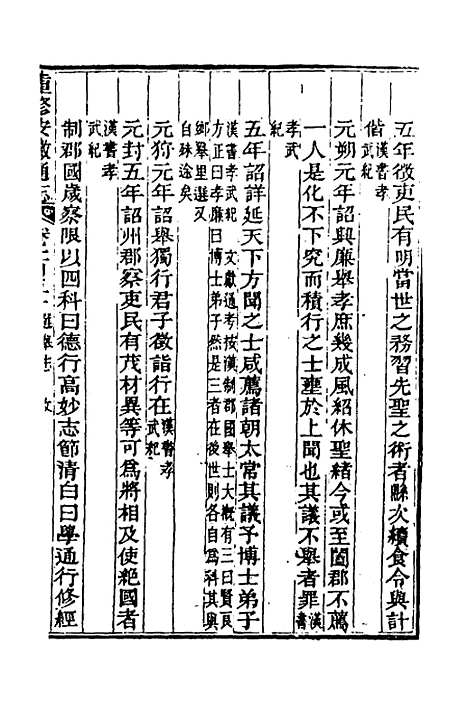 五年徵吏民有明當世之務習先聖之術者縣次續食令與計
偕漢書孝武紀
元朔元年詔興廉舉孝庶幾成風紹休聖緒今或至闔郡不薦
一人是化不下究而積行之士壅於上聞也其議不舉者罪漢書
孝武紀
五年詔詳延天下方聞之士咸薦諸朝太常其議予博士弟子
漢書孝武紀 文獻通考按漢制郡國舉士大概有三曰賢良
方正曰孝廉曰博士弟子然是三者在後世則各自爲科其與
鄉舉里選又
自殊途矣
元狩元年詔舉獨行君子徵詣行在漢書孝武紀
元封五年詔州郡察吏民有茂材異等可爲將相及使絕國者
漢書孝武紀
制郡國歲察限以四科曰德行高妙志節清白曰學通行修經
重修安徽通志